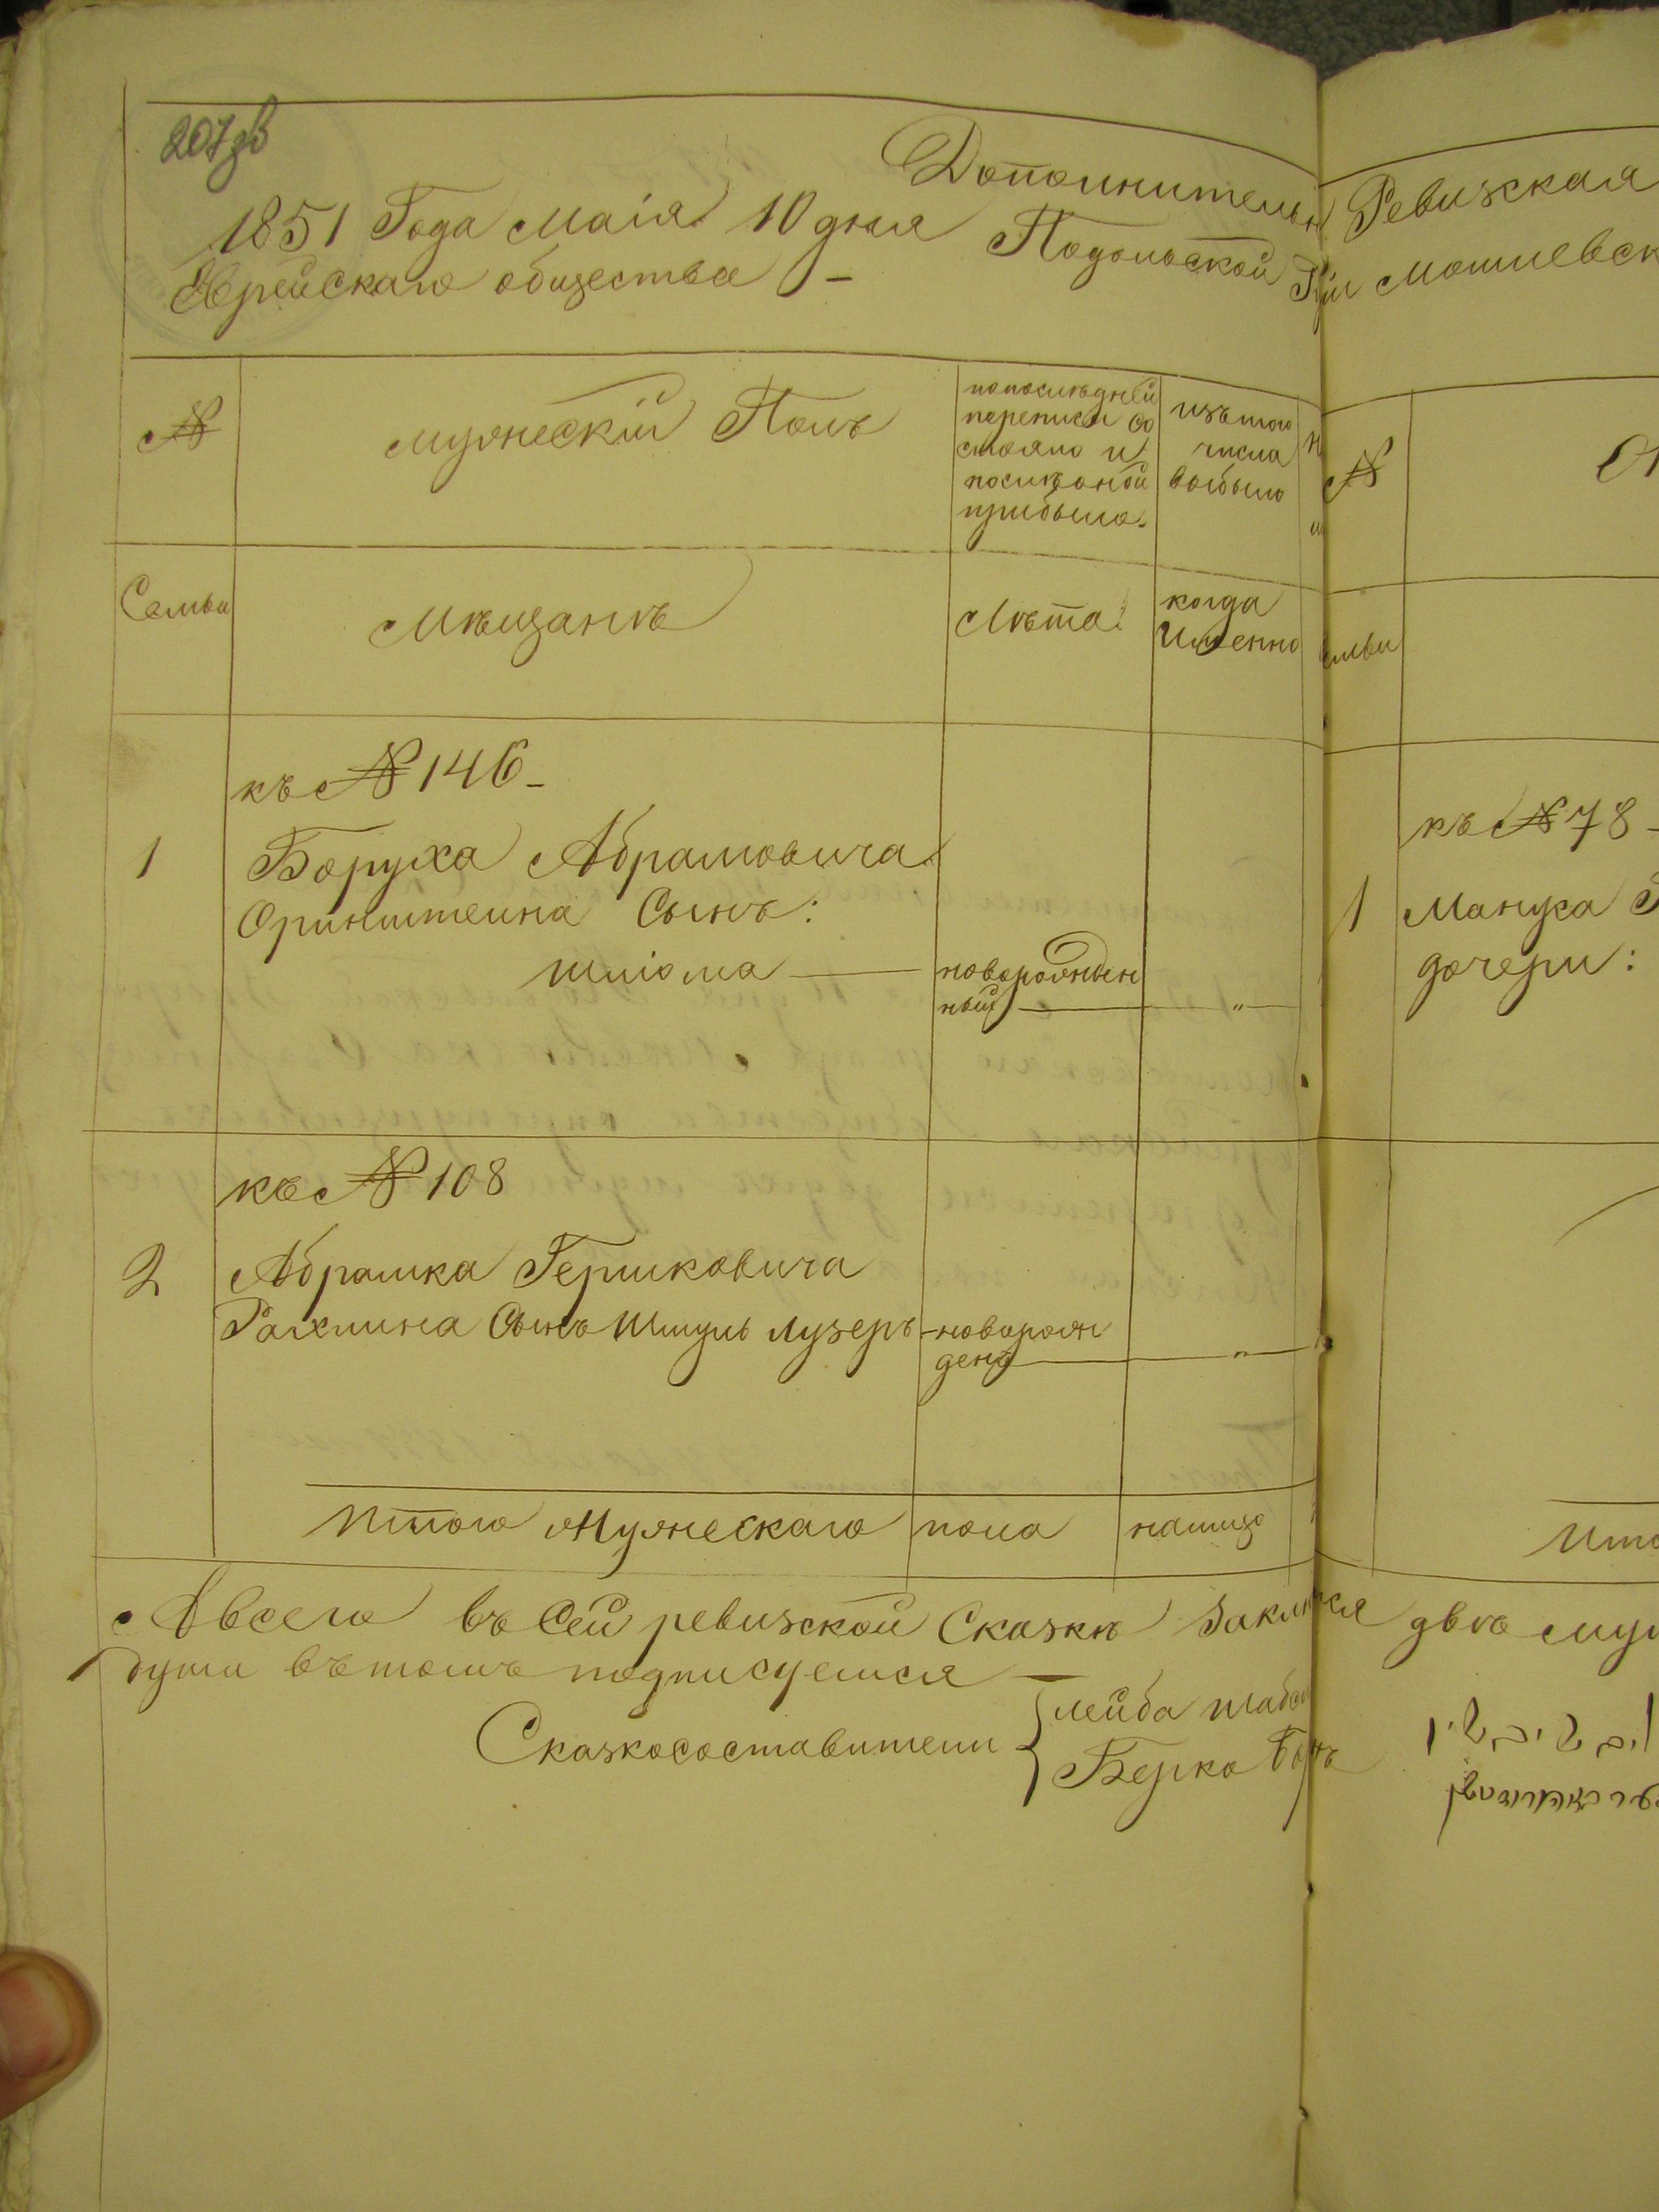 207зв
Дополнительн Ревизская
1851 Года Маія 10 дня Подольской Губ Могилевск
Еврейскаго общества –
№
мужескій Полъ
попослѣдней
переписи со
стояло и
послѣ оной
прибыло.
изъ того
числа
выбыло
№
Семьи
Мѣщанъ
Лѣта
когда
Именно
емьи
къ № 146 –
1 Боруха Абрамовича
Оринштеина Сынъ:
Шліома — новорожден
ный — „ —
къ № 78 –
1 Манука
дочери:
къ № 108
2 Абрамка Гершковича
Рахлина Сынъ Шмуль Лузеръ – новорож
денъ — „ —
Итого Мужескаго пола налицо
Ито
Авсего въ Сей ревизской Сказкѣ Заключ ся двѣ муж
души въ томъ подписуемся —
Сказкосоставители { Лейба Шабс
Берко